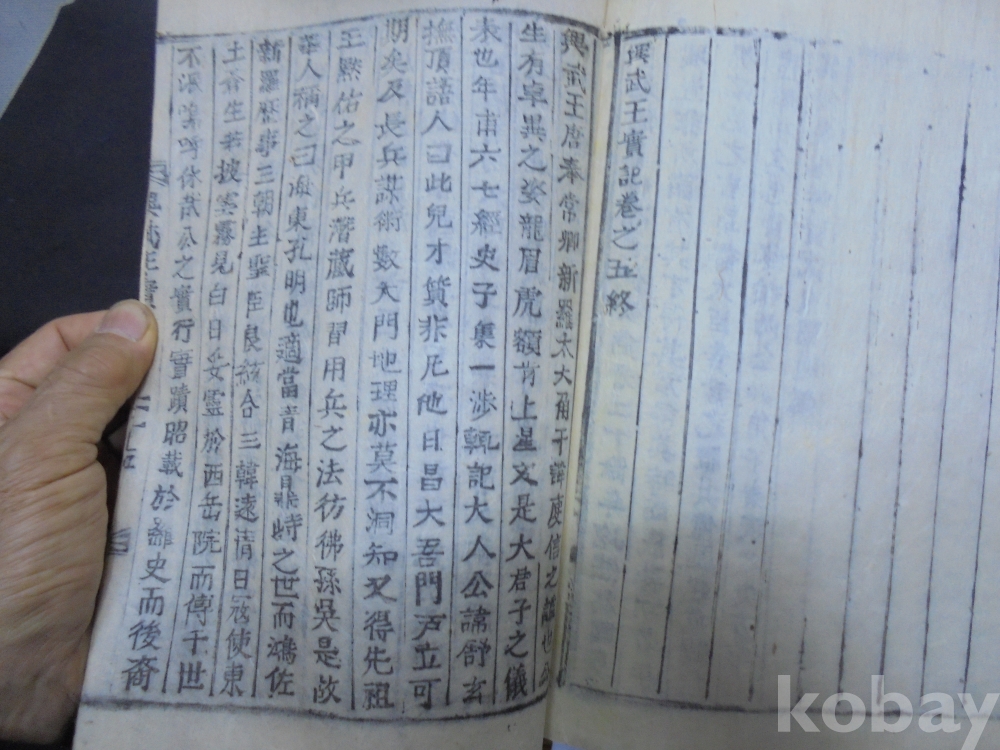 興武王實記卷之五終
興武王唐奉常卿新羅太大角干諱庾信之也公
生有卓異之姿龍眉虎額背上星文是大君子之儀
表也年甫六七經史子集一涉輒記大人公諱舒玄
撫頂語人曰此兒才質非凡他日昌大吾門戶立可
期矣及長兵謀術數天門地理亦莫不洞知又得先祖
王黙佑之甲兵潛藏師習用兵之法彷彿孫吳是故
華人稱之曰海東孔明也適當昔海鼎峙之世而鴻佐
新羅歷事三朝主聖臣良統合三韓遠清日寇使東
土蒼生若披雲霧見白日妥靈於西岳院而傳于世
不泯嗚呼休哉公之實行實蹟昭載於羅史而後裔
興武王實
kobay